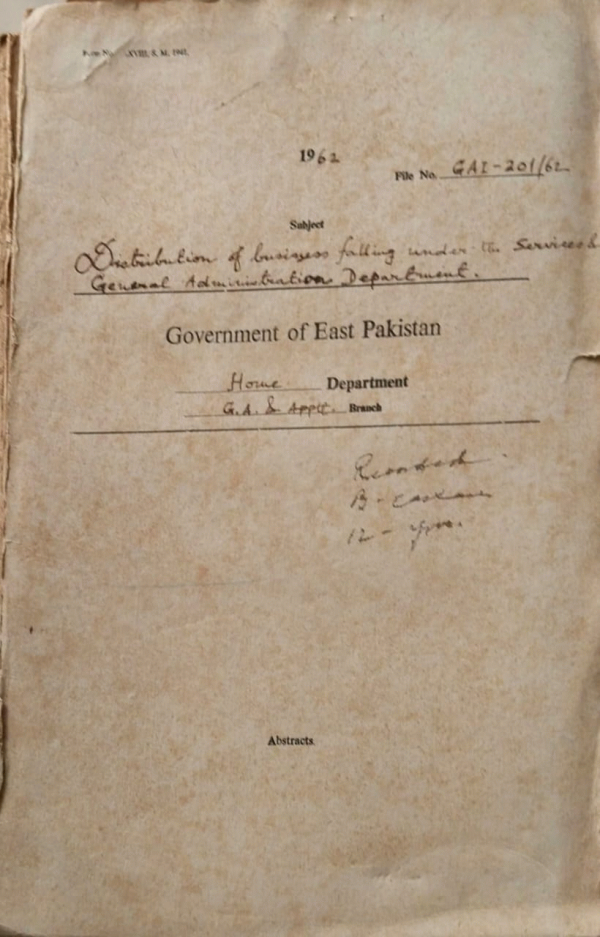 XVIII, S. M. 1961.
1962
File No. GAI-201/62
Subject
Distribution of business falling under the Services &
General Administration Department.
Government of East Pakistan
Home Department
G.A. & Apptt. Branch
Recorded
B -
12 - yrs.
Abstracts